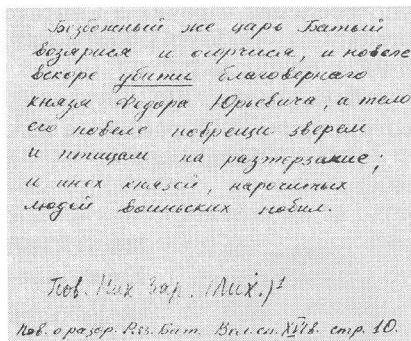 Безбожный же царь Батый
возярися и огорчися, и повеле
вскоре убити благовернаго
князя Федора Юрьевича, а тело
его повеле поврещи зверем
и птицам на разтерзание;
и инех князей, нарочитых
людей воиньских побил.
Пов. Ник Зар. (Лих.)¹
Пов. о разор. Ряз. Бат. Вол. сп. XVIв. стр. 10.